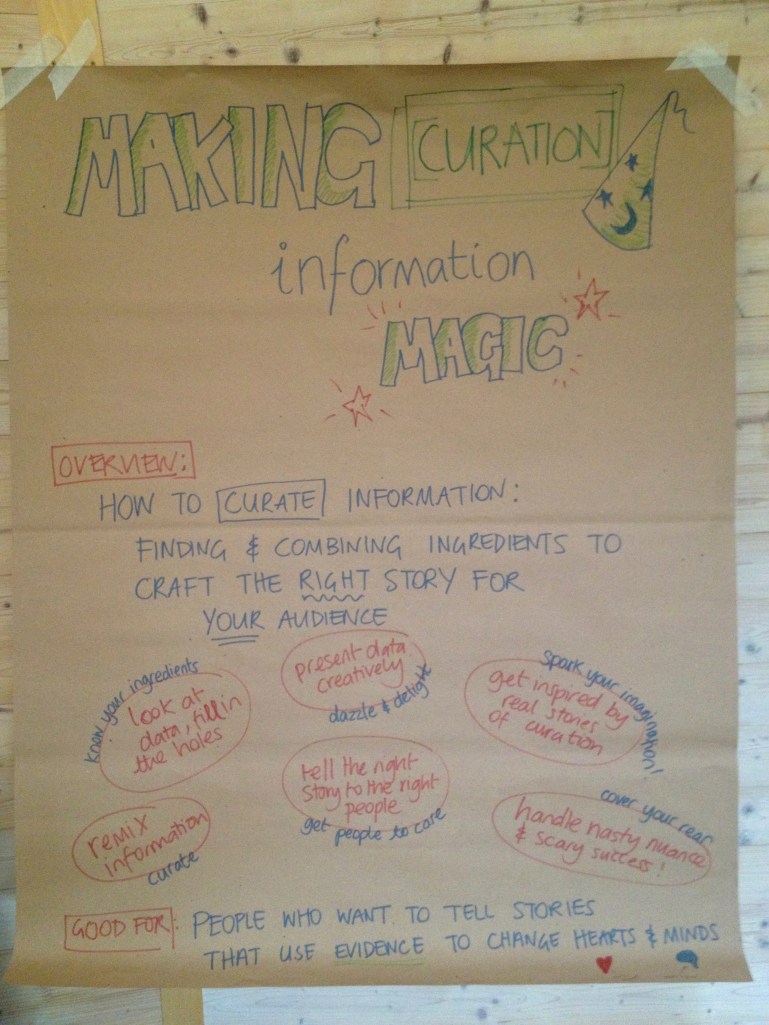 MAKING [CURATION]
information
MAGIC
OVERVIEW:
HOW TO CURATE INFORMATION:
FINDING & COMBINING INGREDIENTS TO
CRAFT THE RIGHT STORY FOR
YOUR AUDIENCE
know your ingredients
look at
data, fill in
the holes
present data
creatively
dazzle & delight
Spark your imagination!
get inspired by
real stories
of curation
remix
information
curate
tell the right
story to the right
people
get people to care
cover your rear
handle nasty nuance
& scary success!
GOOD FOR: PEOPLE WHO WANT TO TELL STORIES
THAT USE EVIDENCE TO CHANGE HEARTS & MINDS